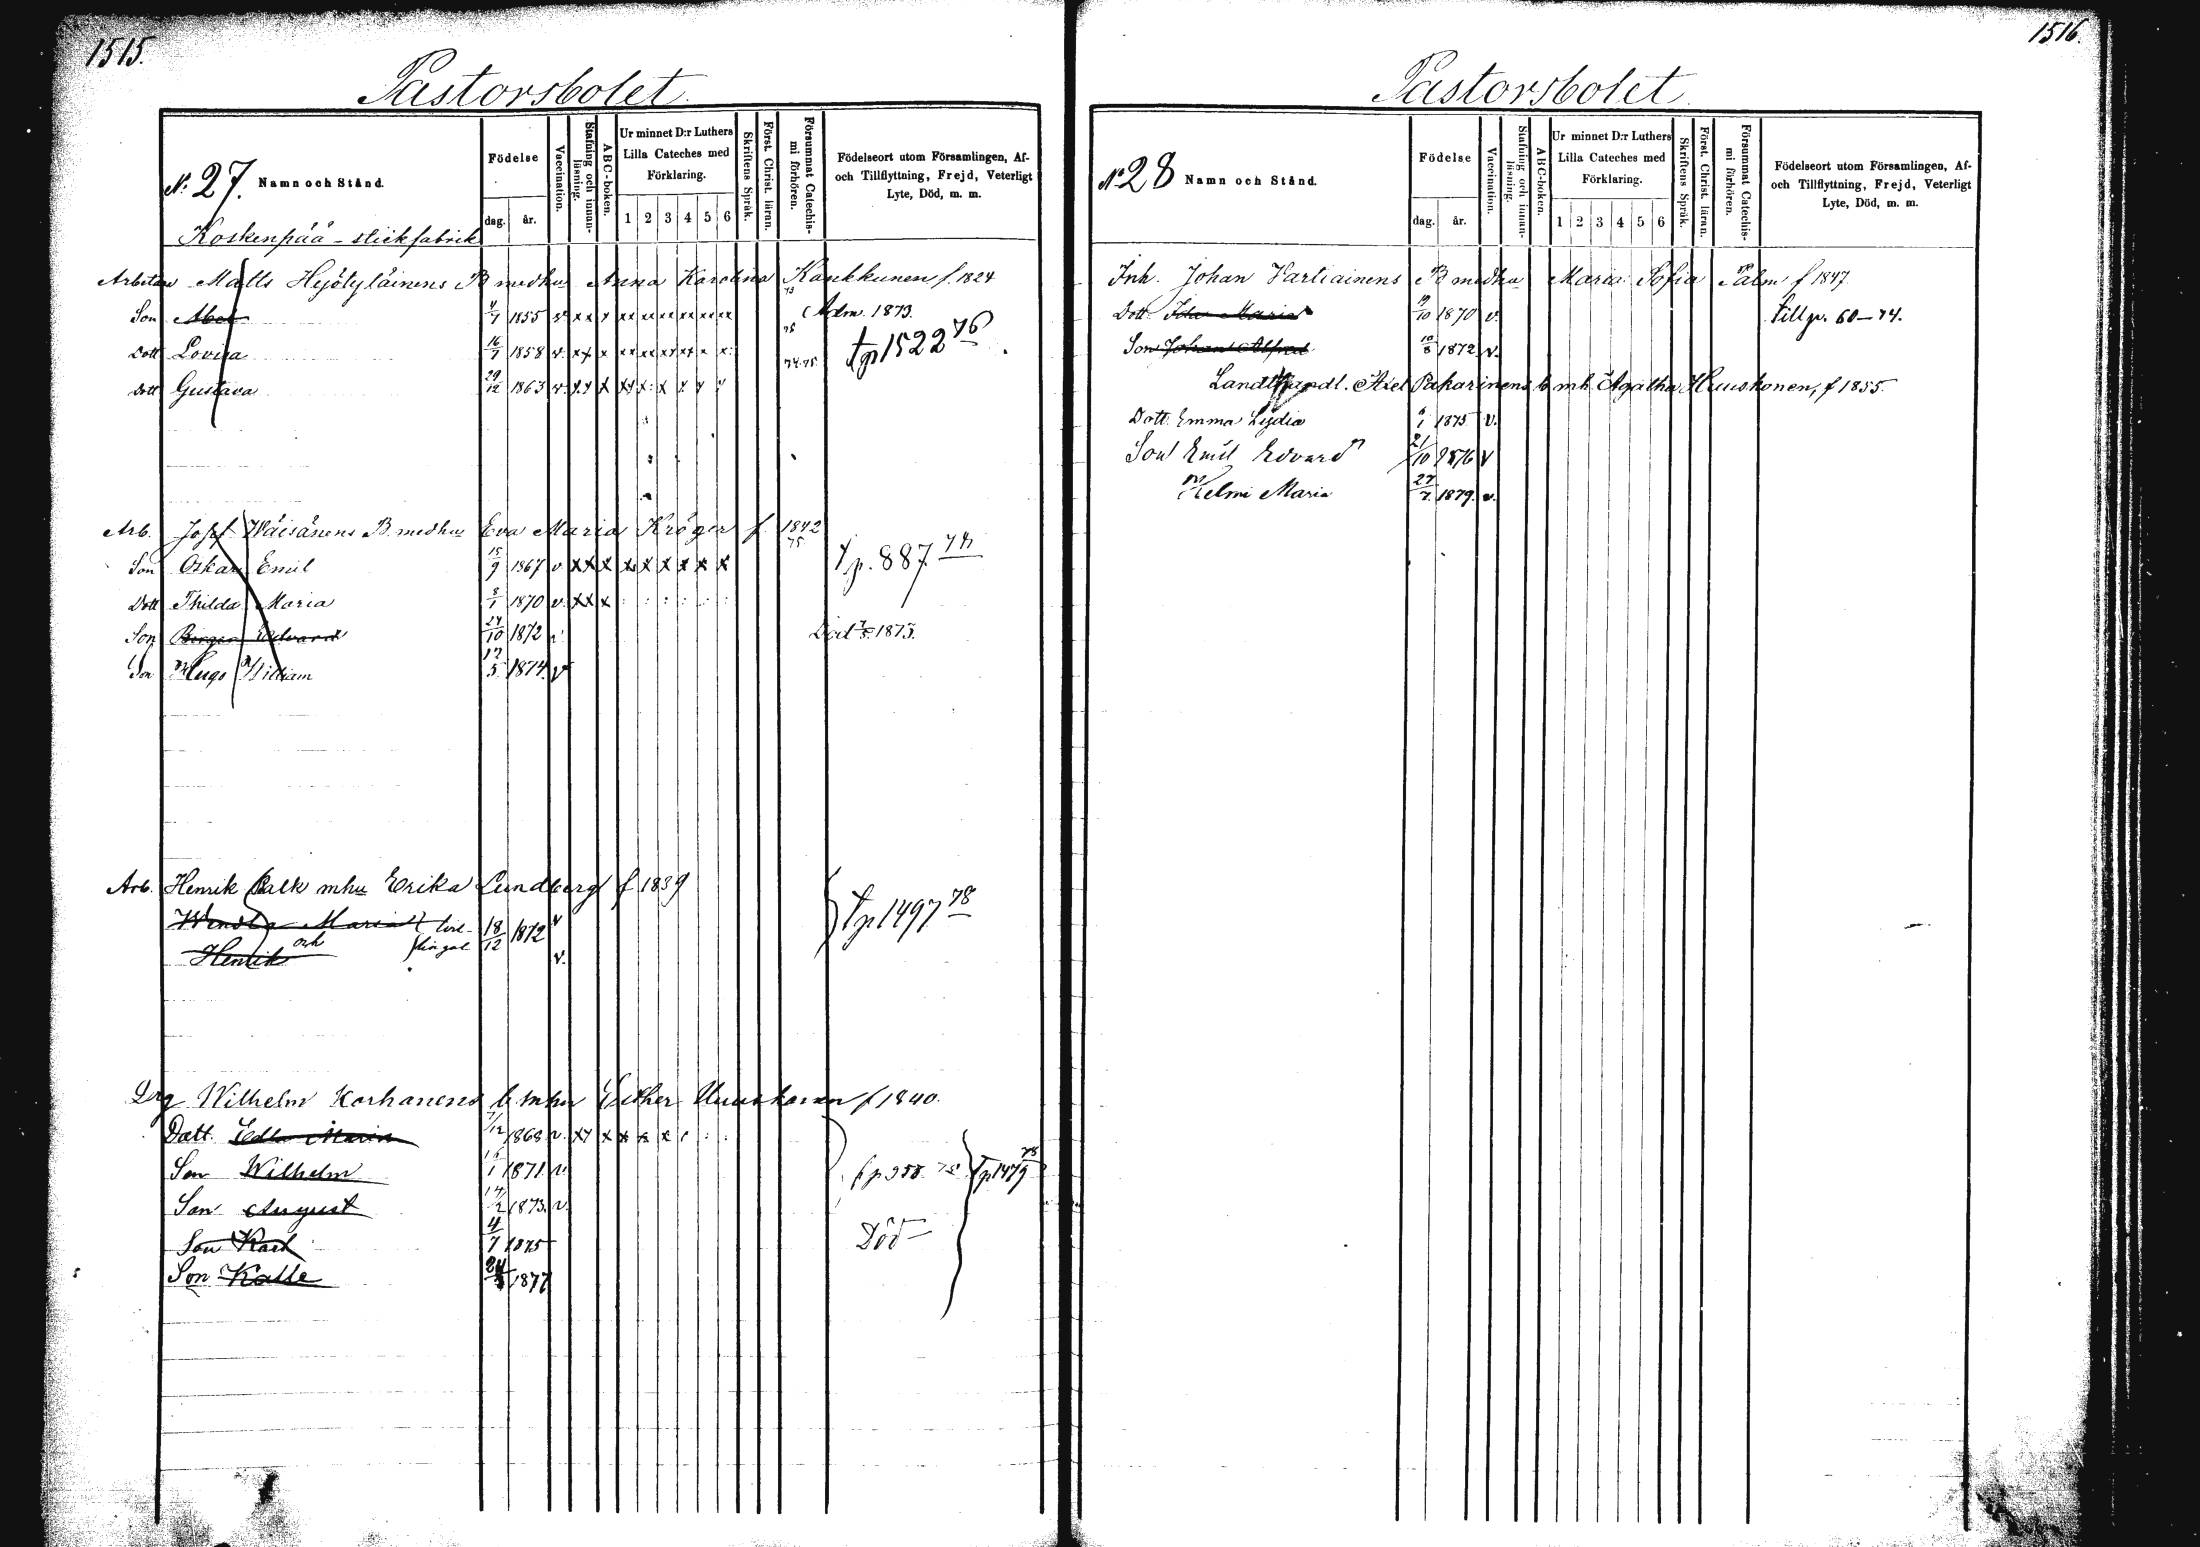 1515.
Pastorsbolet
N:o 27. Namn och Stånd.
Födelse
dag. år.
Vaccination.
Stafning och innan-läsning.
ABC-boken.
Ur minnet D:r Luthers
Lilla Cateches med
Förklaring.
1 2 3 4 5 6
Skriftens Språk.
Först. Christ. läran.
Försummat Catechis-mi förhören.
Födelseort utom Församlingen, Af-
och Tillflyttning, Frejd, Veterligt
Lyte, Död, m. m.
Koskenpää - stickfabrik
Arbetare Matts Hyötyläinens B medhu Anna Karolina Kaukkunen f. 1824
Son Abel 4/7 1855 v xx x xx xx xx xx xx xx 73 Adm. 1873.
Dott Lovisa 16/7 1858 v. xx x xx xx xx xx x x: 75 tp 1522 76
Dott Gustava 29/12 1863 v. xx x xx x: x x x x 74.75.
Arb. Josef Wäisänens B. medhu Eva Maria Kröger f. 1842
Son Oskar Emil 15/9 1867 v xx x x x x x x x 75 Tp. 887 78
Dott Thilda Maria 8/1 1870 v. xx x : : : : : :
Son Edvard 24/10 1872 v. Död 7/5 1873.
Son Hugo William 17/5 1874. v
Arb. Henrik Palk mhu Erika Lundberg f 1839
Maria tvil-
och lingar 18/12 1872 v
Henrik v.
Tp 1497 78
Drg Wilhelm Korhonens b. mhu Esther Huuskonen f 1840.
Dott. Edla Maria 7/12 1868 v. xx x x x x : : :
Son Wilhelm 1 1871. v.
Son August 14/2 1873. v.
Son Karl 4/7 1875
Son Kalle 24 1877
fp 958 78 Tp 1479 78
Död
1516.
Pastorsbolet
N:o 28 Namn och Stånd.
Födelse
dag. år.
Vaccination.
Stafning och innan-läsning.
ABC-boken.
Ur minnet D:r Luthers
Lilla Cateches med
Förklaring.
1 2 3 4 5 6
Skriftens Språk.
Först. Christ. läran.
Försummat Catechis-mi förhören.
Födelseort utom Församlingen, Af-
och Tillflyttning, Frejd, Veterligt
Lyte, Död, m. m.
Inh. Johan Vartiainens B medhu Maria Sofia Palm f 1847.
Dott. Maria 19/10 1870 v. till p. 60 - 74.
Son Johan Alfred 10/8 1872 v.
Landthandl. Axel Pakarinens b. mh. Agatha Huuskonen, f 1855.
Dott. Emma Lydia 6/1 1875 v.
Son Emil Edvard 21/10 1876 v
Helmi Maria 27/7. 1879. v.